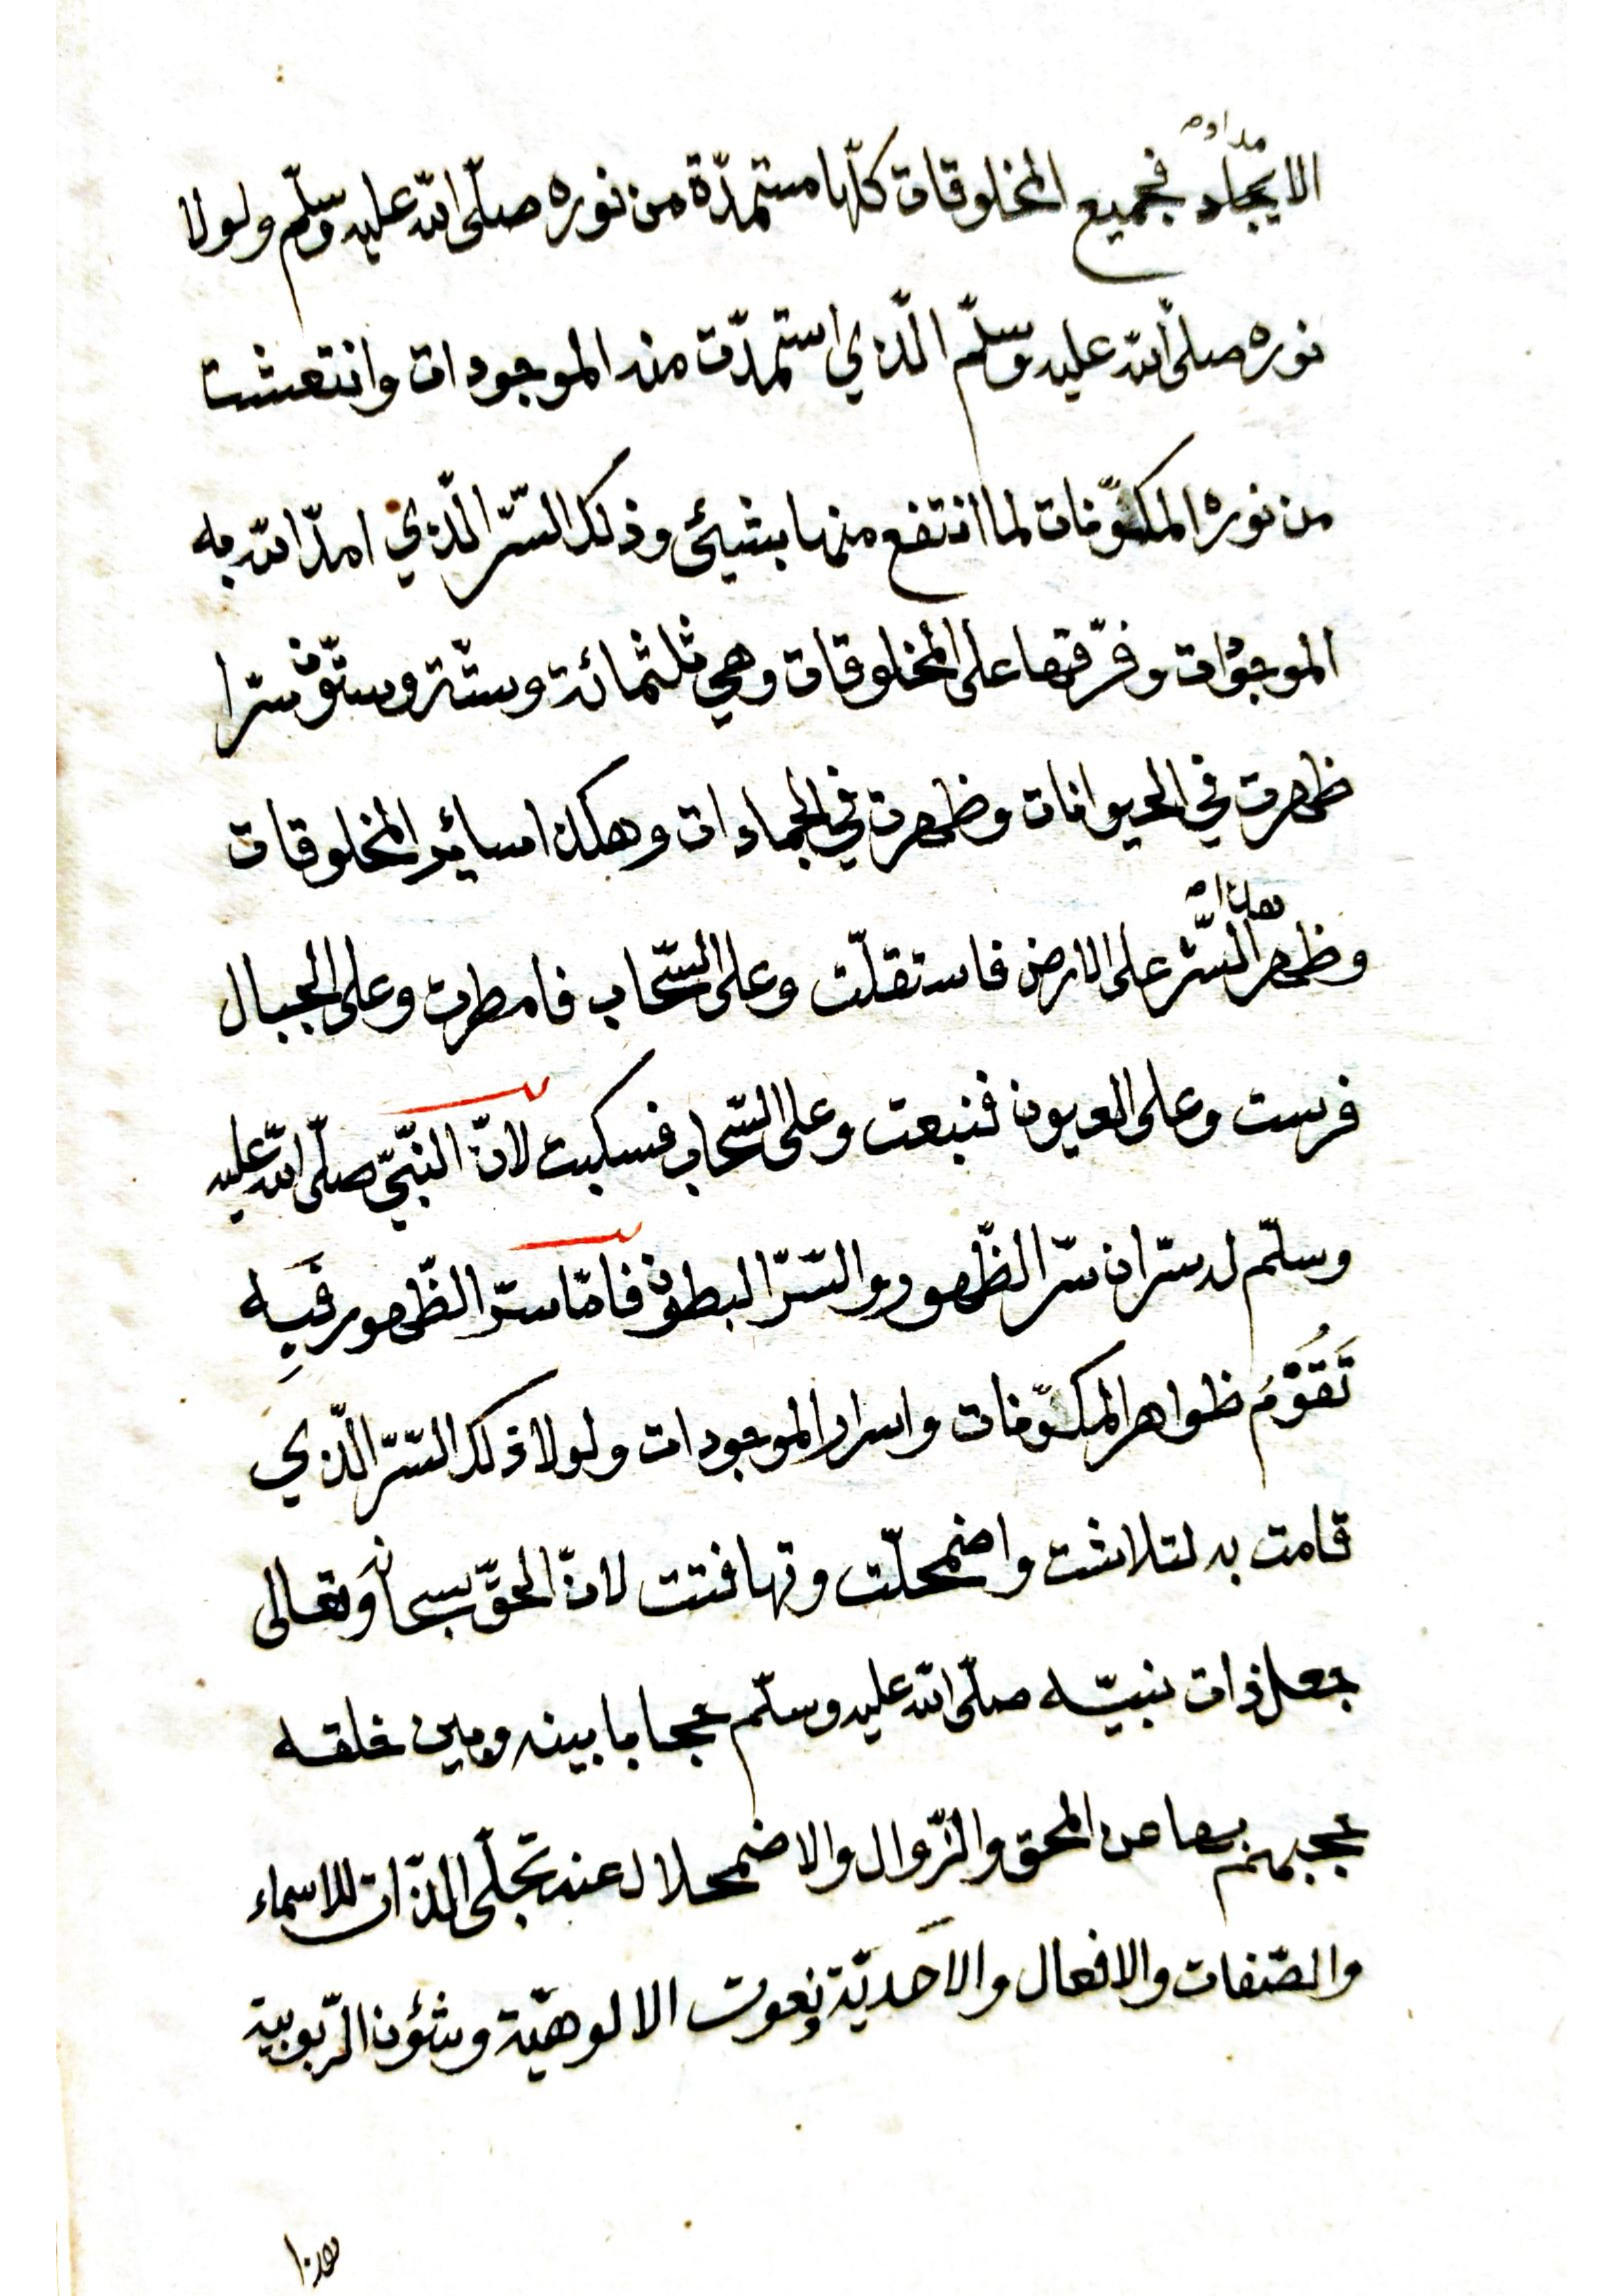 الايجاد فجميع المخلوقات كلّها مستمدّة من نوره صلّى الله عليه وسلّم ولولا
نوره صلّى الله عليه وسلّم الّذي استمدّت منه الموجودات وانتعشت
من نوره المكوّنات لما انتفع منها بشيئ وذلك السّرّ الّذي امدّ الله به
الموجودات وفرّقها على المخلوقات وهي ثلثمائة وستّة وستّون سرّا
ظهرت في الحيوانات وظهرت في الجمادات وهكذا سائر المخلوقات
هذا
وظهر السّرّ على الارض فاستقلّت وعلى السّحاب فامطرت وعلى الجبال
فرست وعلى العيون فنبعت وعلى السّحاب فسكبت لانّ النّبيّ صلّى الله عليه
وسلّم له سرّان سرّ الظّهور والسّرّ البطون فامّا سرّ الظّهور فَبِه
تَقُوْمُ ظواهر المكوّنات واسرار الموجودات ولولا ذلك السّرّ الّذي
قامت به لتلاشت واضمحلّت وتهافتت لانّ الحقّ سبحانه وتعالى
جعل ذات نبيّه صلّى الله عليه وسلّم حجابا بينه وبين خلقه
حجبهم بها عن المحق والزّوال والاضمحلال عند تجلّى الذّات للاسماء
والصّفات والافعال والاَحديّة بنعوت الالوهيّة وشؤن الرّبوبية
فهذا